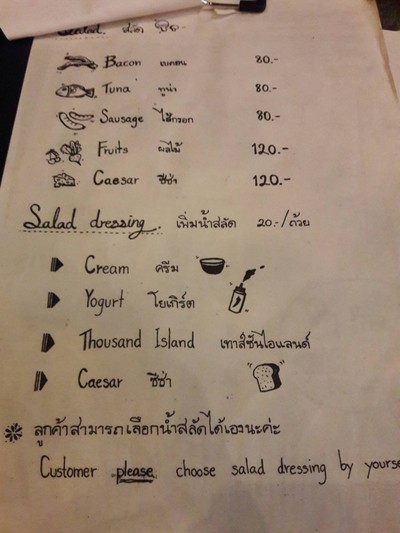 Salad. สลัด
Bacon เบคอน 80.-
Tuna ทูน่า 80.-
Sausage ไส้กรอก 80.-
Fruits ผลไม้ 120.-
Caesar ซีซ่า 120.-
Salad dressing. เพิ่มน้ำสลัด 20.-/ถ้วย
Cream ครีม
Yogurt โยเกิร์ต
Thousand Island เทาส์ซันไอแลนด์
Caesar ซีซ่า
※ ลูกค้าสามารถเลือกน้ำสลัดได้เองนะค่ะ
Customer please choose salad dressing by yourse